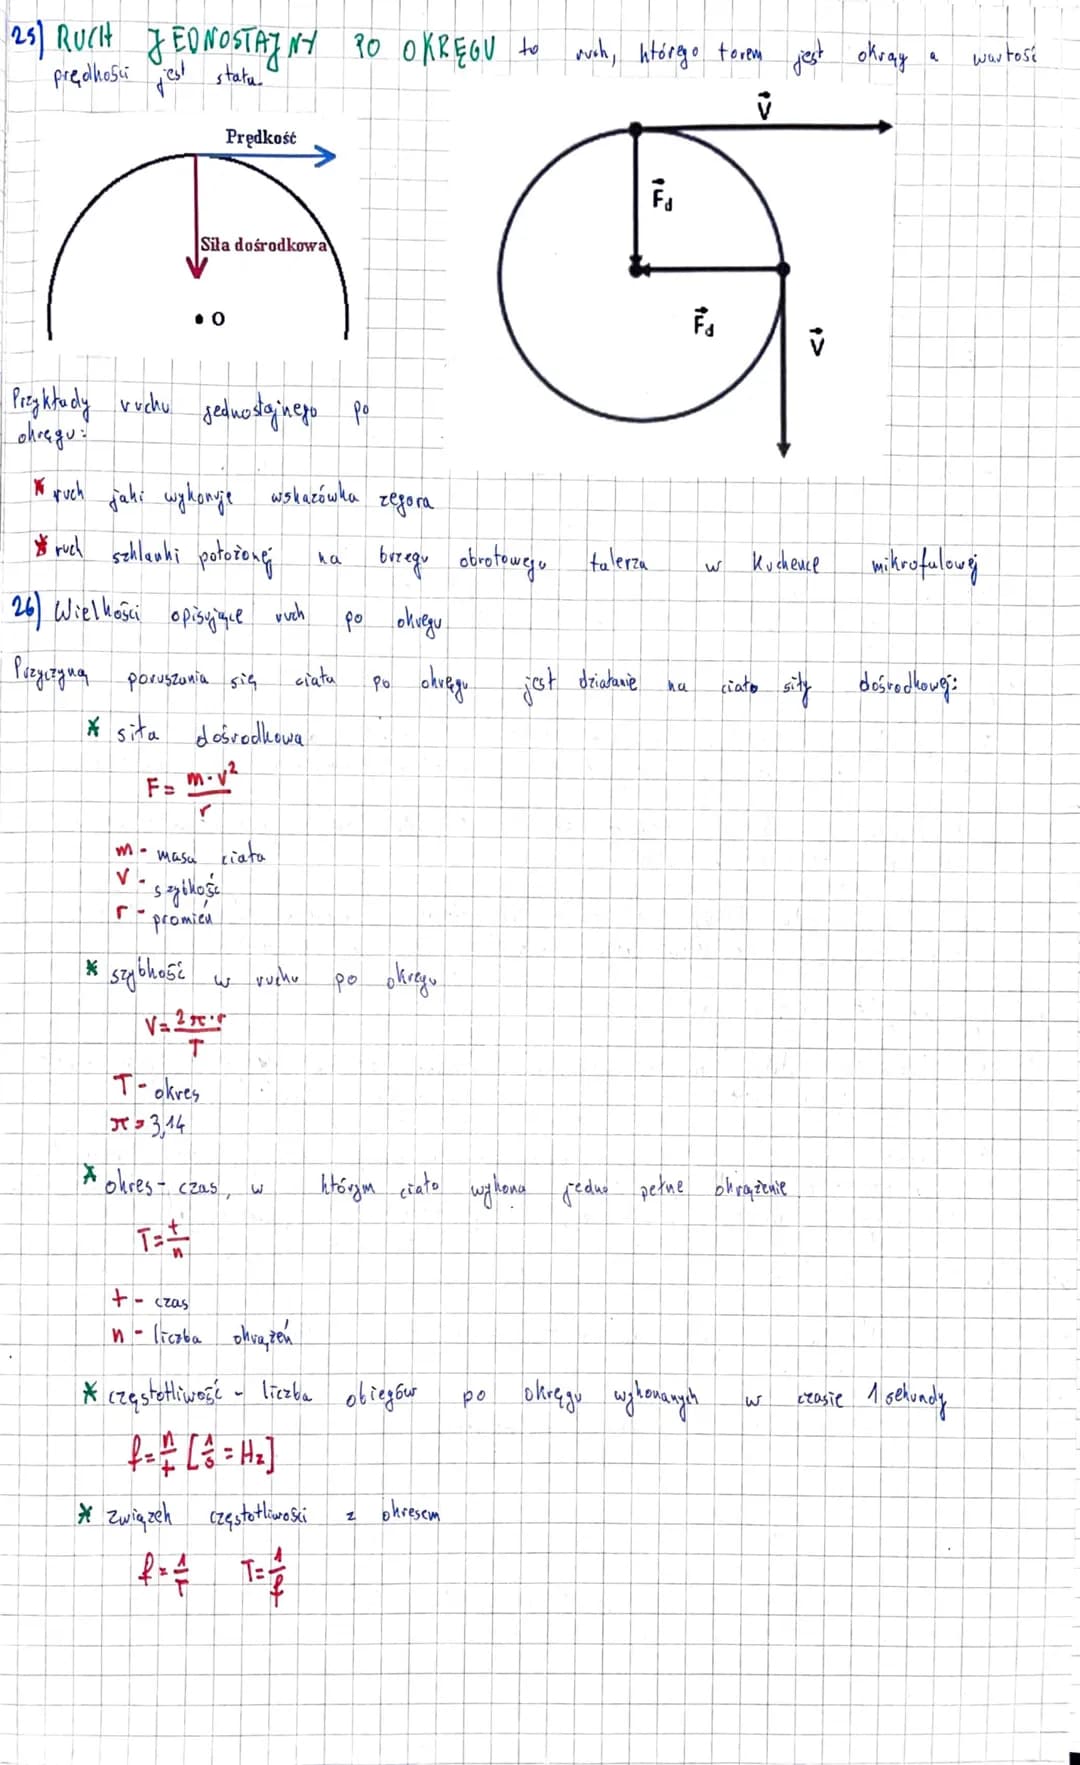 25) RUCH JEDNOSTAJNY PO OKRĘGU to ruch, którego torem jest okrąg a wartość
prędkości jest stała
Prędkość
Siła dośrodkowa
O
V
Fd
Fd
V
Przykłady ruchu jednostajnego po
okręgu:
* ruch jaki wykonuje wskazówka zegara
* ruch szklanki położonej na brzegu obrotowego talerza w kuchence mikrofalowej
26) Wielkości opisujące ruch po okręgu
Przyczyną poruszania się ciała po okręgu jest działanie na ciało siły dośrodkowej:
* siła dośrodkowa
F = m·v²/r
m - masa ciała
v - szybkość
r - promień
* szybkość w ruchu po okręgu
V = 2π·r/T
T - okres
π = 3,14
* okres - czas, w którym ciało wykona jedno pełne okrążenie
T = t/n
t - czas
n - liczba okrążeń
* częstotliwość - liczba obiegów po okręgu wykonanych w czasie 1 sekundy
f = n/t [1/s = Hz]
* związek częstotliwości z okresem
f = 1/T T = 1/f